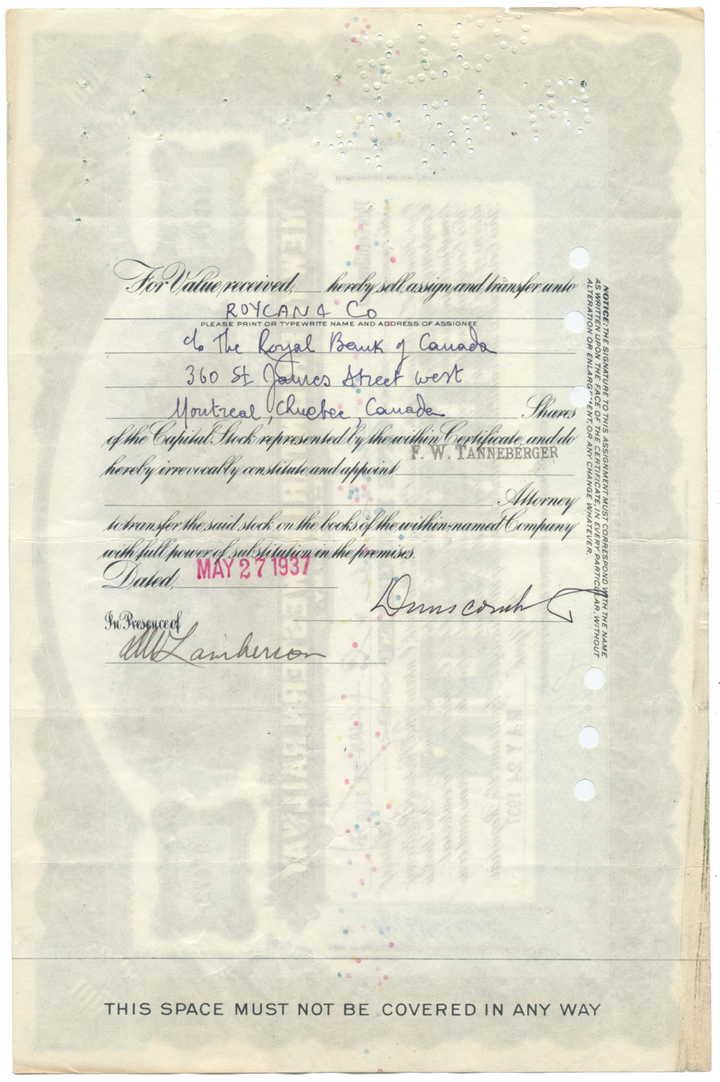 For Value, received, ___ hereby sell, assign and transfer unto
ROYCAN & Co
PLEASE PRINT OR TYPEWRITE NAME AND ADDRESS OF ASSIGNEE
c/o The Royal Bank of Canada
360 St James Street West
Montreal, Quebec, Canada Shares
of the Capital Stock represented by the within Certificate, and do
F. W. TANNEBERGER
hereby irrevocably constitute and appoint
Attorney
to transfer the said stock on the books of the within-named Company
with full power of substitution in the premises.
Dated, MAY 27 1937
Dunscomb &
In Presence of
Lamberson
NOTICE: THE SIGNATURE TO THIS ASSIGNMENT MUST CORRESPOND WITH THE NAME
AS WRITTEN UPON THE FACE OF THE CERTIFICATE, IN EVERY PARTICULAR, WITHOUT
ALTERATION OR ENLARGEMENT, OR ANY CHANGE WHATEVER.
THIS SPACE MUST NOT BE COVERED IN ANY WAY